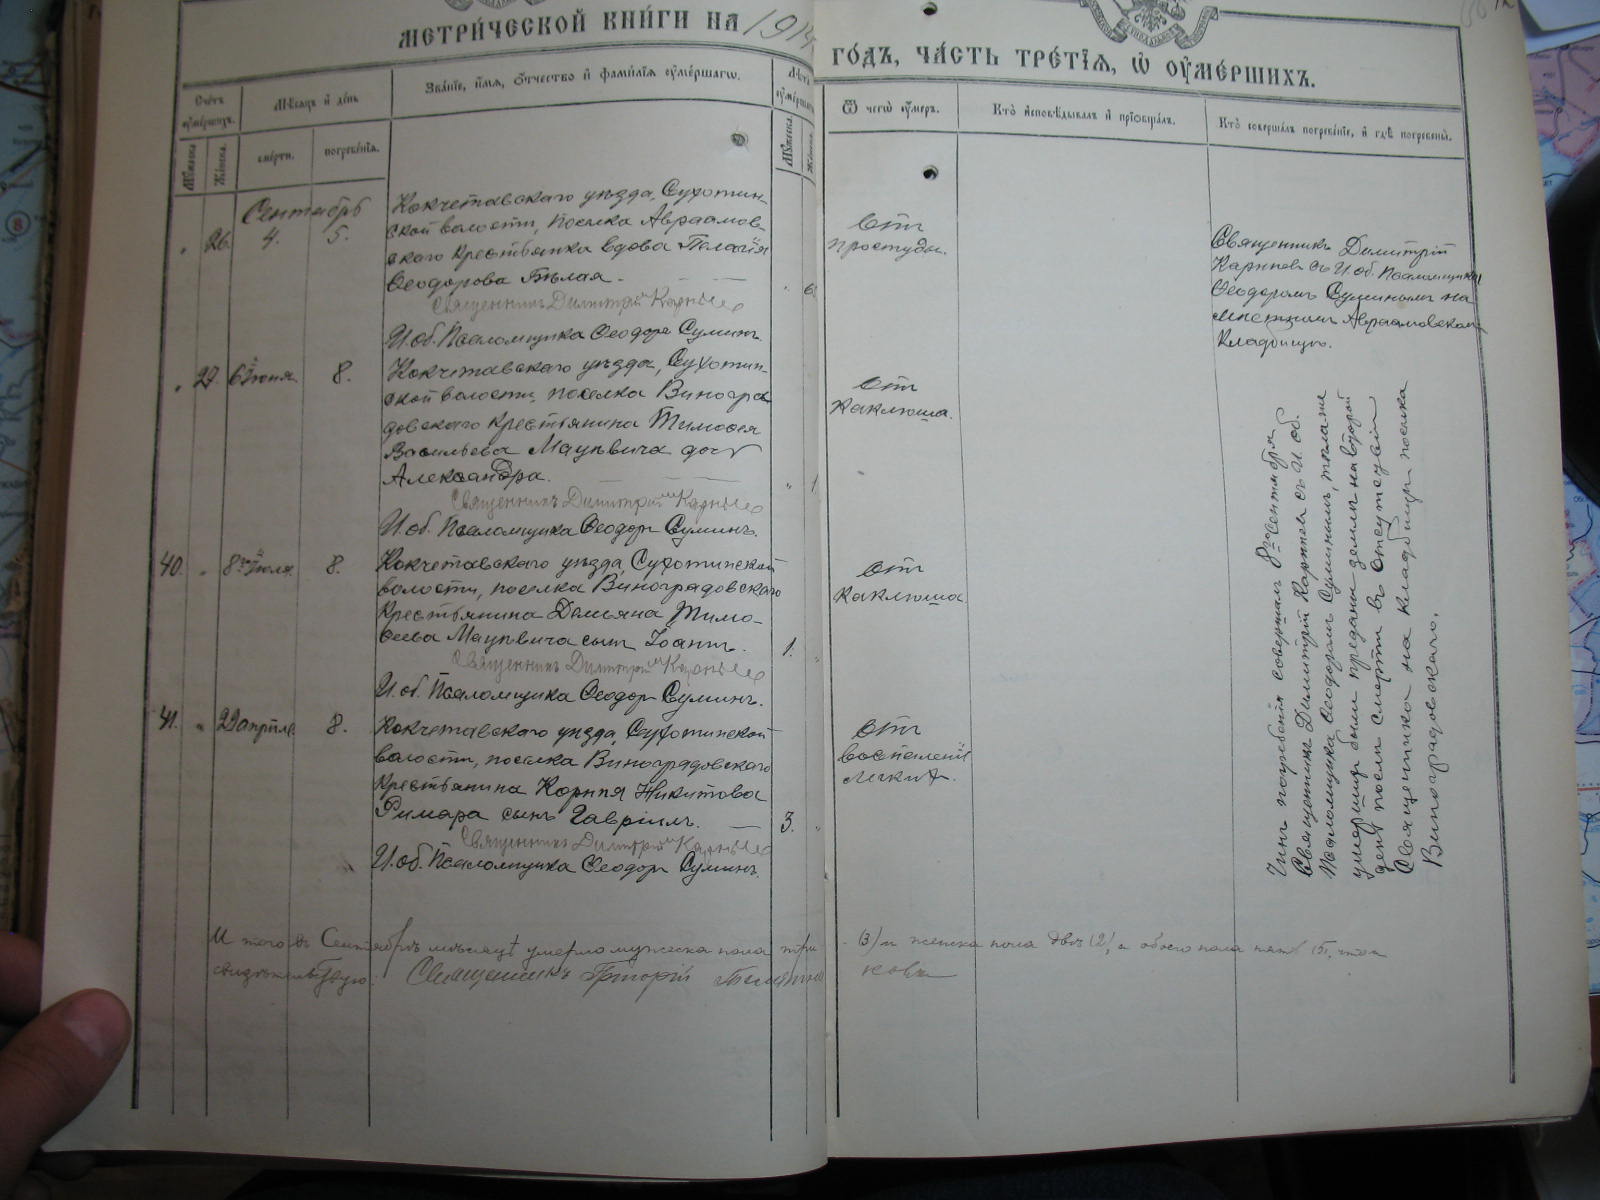 МЕТРИ́ЧЕСКОЙ КНИ́ГИ НА 1914
ГО́ДЪ, ЧА́СТЬ ТРЕ́ТІѦ, Ѡ҆ ОУ҆МЕ́РШИХЪ.
Сче́тъ оу҆ме́ршихъ.
Мѣ́сѧцъ и҆ де́нь
Зва́нїе, и҆́мѧ, ѻ҆́тчество и҆ фами́лїѧ оу҆ме́ршагѡ.
Лѣ́та оу҆ме́ршагѡ
Ѿ чегѡ̀ оу҆́меръ.
Кто̀ и҆сповѣ́дывалъ и҆ прїѡбща́лъ.
Кто̀ соверша́лъ погребе́нїе, и҆ гдѣ̀ погребены̀.
Мꙋ́жеска
Же́нска.
сме́рти.
погребе́нїѧ.
Мꙋ́жеска.
Же́нска.
Сентября
" 26. 4. 5.
Кокчетавскаго уѣзда, Сухотин-
ской волости, поселка Авраамов-
скаго крестьянка вдова Пелагія
Ѳеодорова Бѣлая.
Священникъ Димитрій Карнѣев
И. об. Псаломщика Ѳеодоръ Суминъ.
Отъ
простуды.
Священникъ Димитрій
Карнѣевъ съ И. об. Псаломщика
Ѳеодоромъ Суминымъ на
мѣстномъ Авраамовском
кладбищѣ.
" 27. 6 Іюня 8.
Кокчетавскаго уѣзда, Сухотин-
ской волости, поселка Виногра-
довскаго крестьянина Тимоѳея
Васильева Мацѣвича дочь
Александра. " 1
Священникъ Димитрій Карнѣев
И. об. Псаломщика Ѳеодоръ Суминъ.
Отъ
Каклюша.
40. " 8го Іюля 8.
Кокчетавскаго уѣзда, Сухотинской
волости, поселка Виноградовскаго
крестьянина Демьяна Тимо-
ѳеева Мацѣвича сынъ Іоаннъ. 1. "
Священникъ Димитрій Карнѣев
И. об. Псаломщика Ѳеодоръ Суминъ.
Отъ
Каклюша.
41. " 22 апрѣля 8.
Кокчетавскаго уѣзда, Сухотинской
волости, поселка Виноградовскаго
крестьянина Корнѣя Никитова
Римара сынъ Гавріилъ. 3. "
Священникъ Димитрій Карнѣев
И. об. Псаломщика Ѳеодоръ Суминъ.
Отъ
воспаленія
легкихъ.
Чинъ погребенія совершалъ 8го сентября
Священникъ Димитрій Карнѣевъ съ И. об.
Псаломщика Ѳеодоромъ Суминымъ, тѣла же
умершихъ были преданы землѣ на второй
день послѣ смерти въ отсутствіи
Священника на кладбищѣ поселка
Виноградовскаго.
Итого въ Сентябрѣ мѣсяцѣ умерло мужеска пола три (3) и женска пола двѣ (2), а обоего пола пять (5), что и
свидѣтельствую. Священникъ Григорій